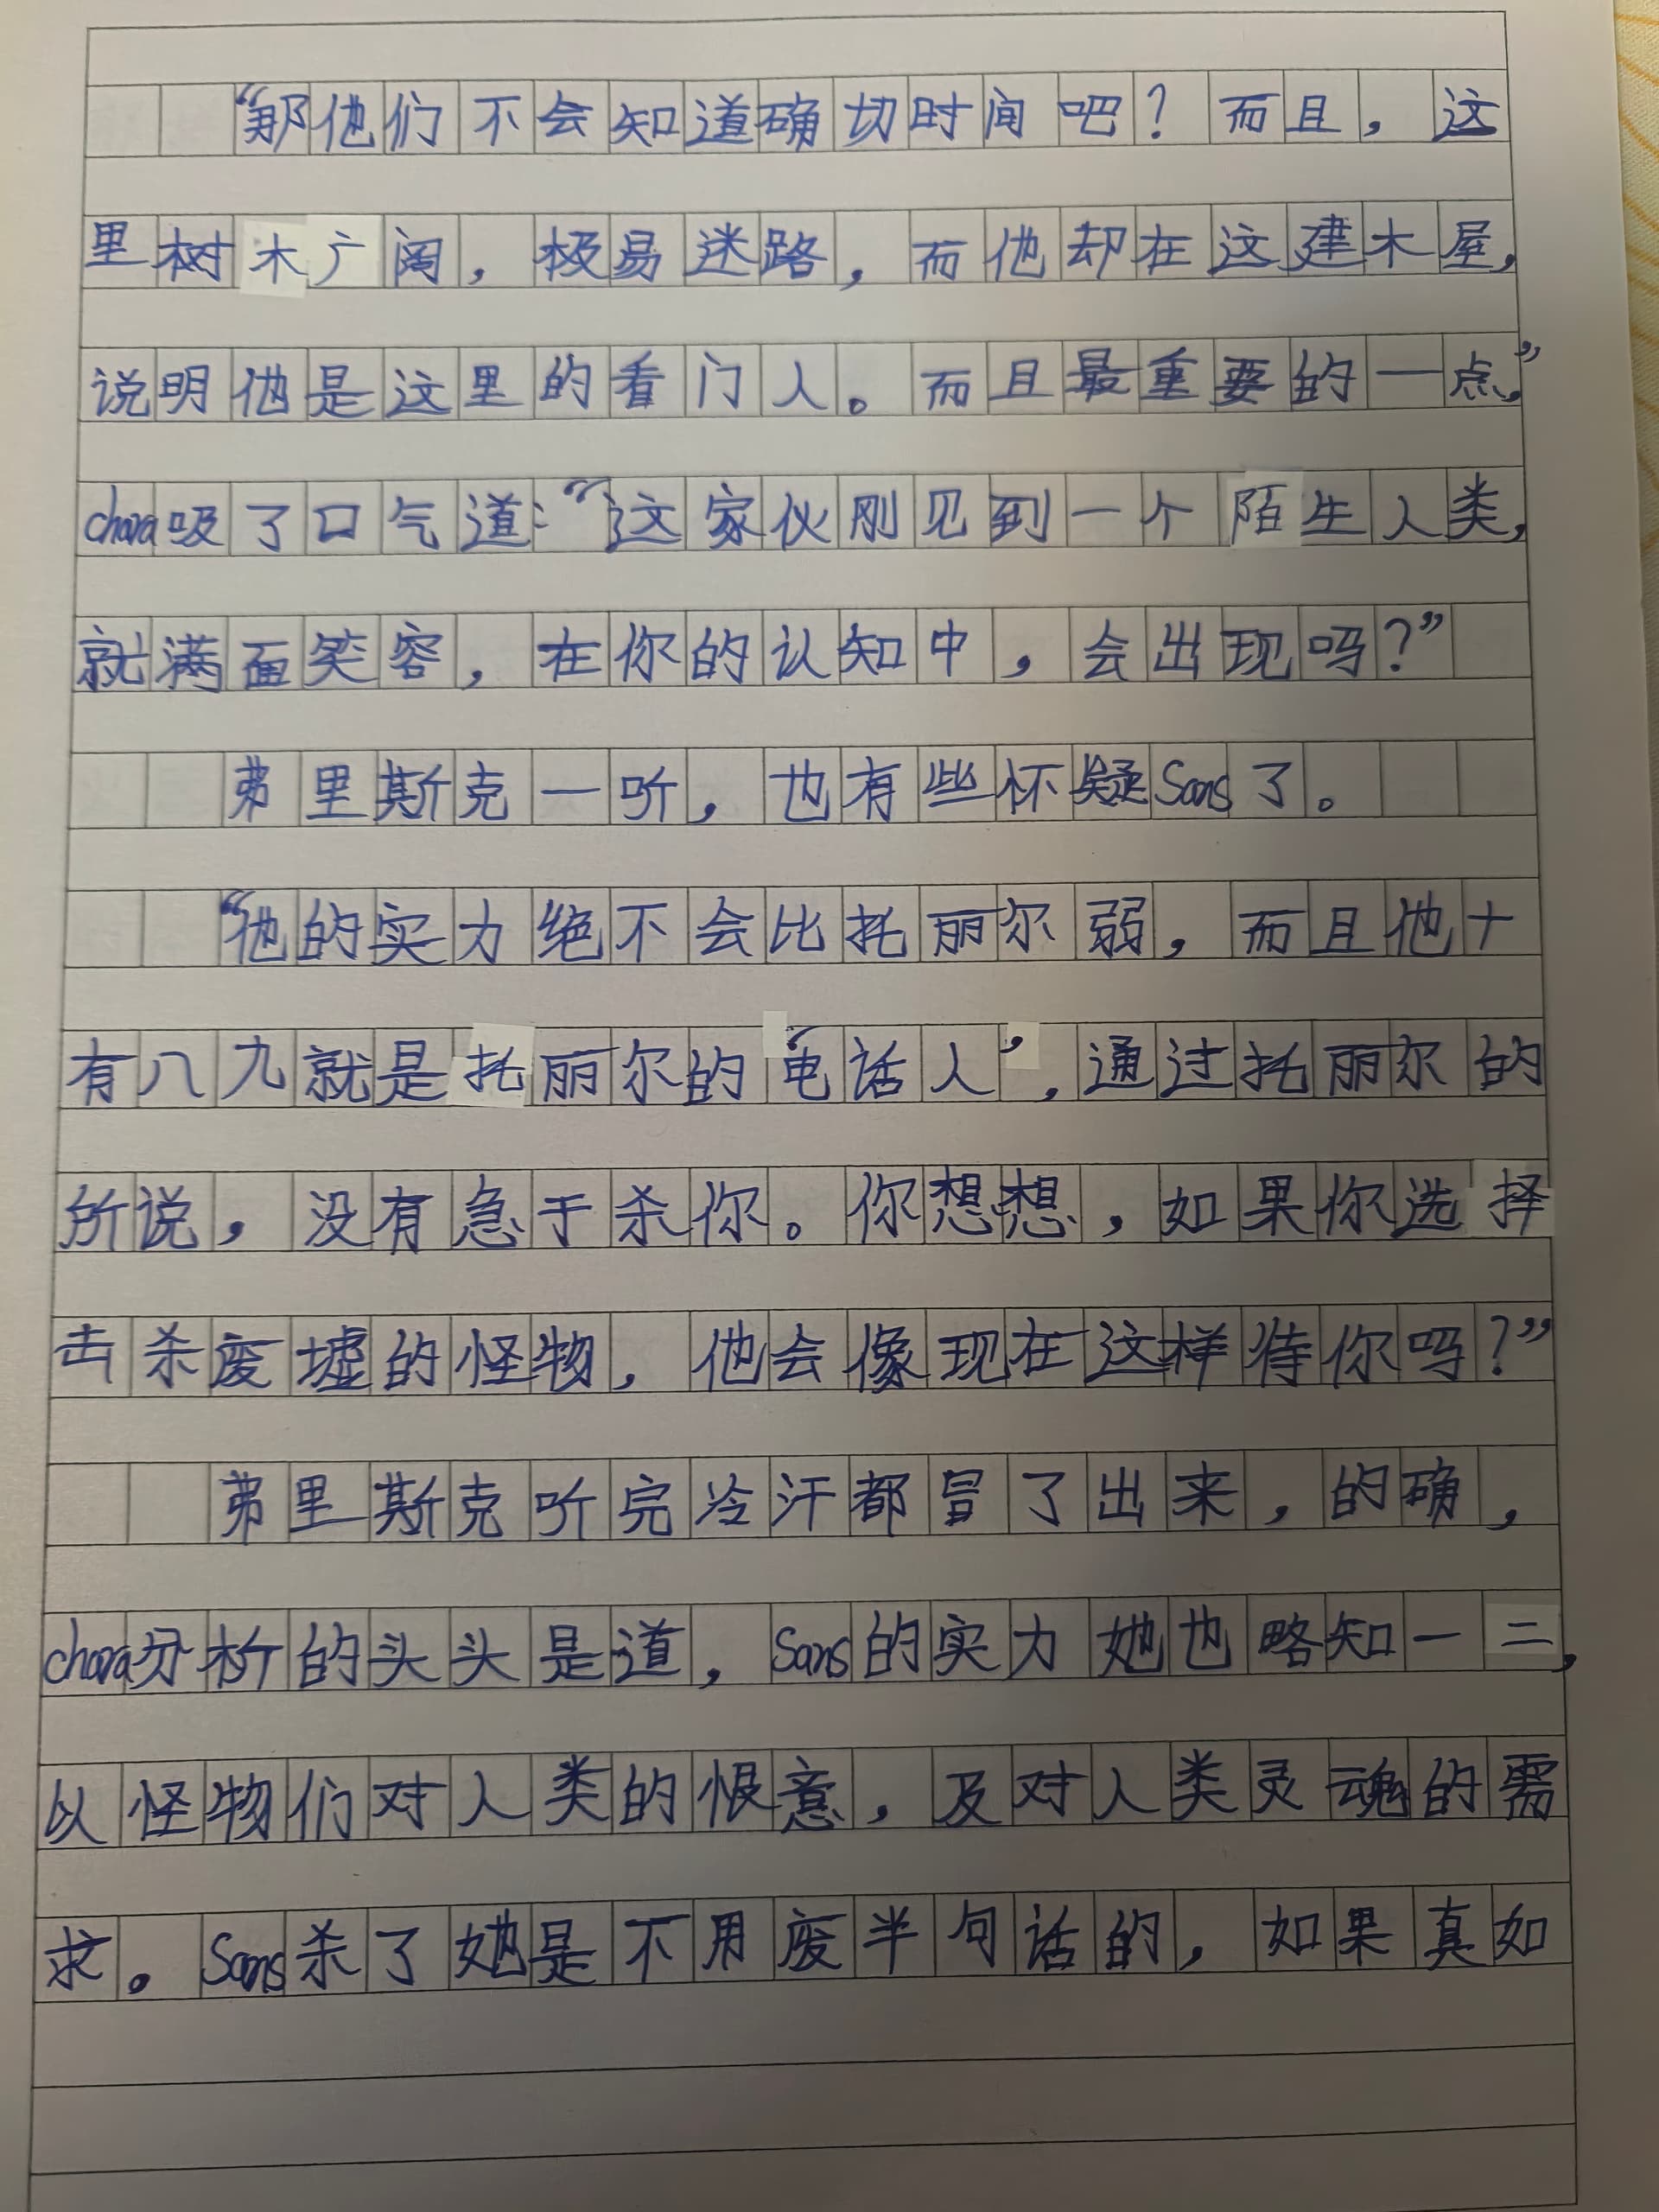 “那他们不会知道确切时间吧？而且，这
里树木广阔，极易迷路，而他却在这建木屋，
说明他是这里的看门人。而且最重要的一点。”
chara吸了口气道：“这家伙刚见到一个陌生人类，
就满面笑容，在你的认知中，会出现吗？”
弗里斯克一听，也有些怀疑Sans了。
“他的实力绝不会比托丽尔弱，而且他十
有八九就是托丽尔的‘电话人’，通过托丽尔的
所说，没有急于杀你。你想想，如果你选择
击杀废墟的怪物，他会像现在这样待你吗？”
弗里斯克听完冷汗都冒了出来，的确，
chara分析的头头是道，Sans的实力她也略知一二，
以怪物们对人类的恨意，及对人类灵魂的需
求。Sans杀了她是不用废半句话的，如果真如